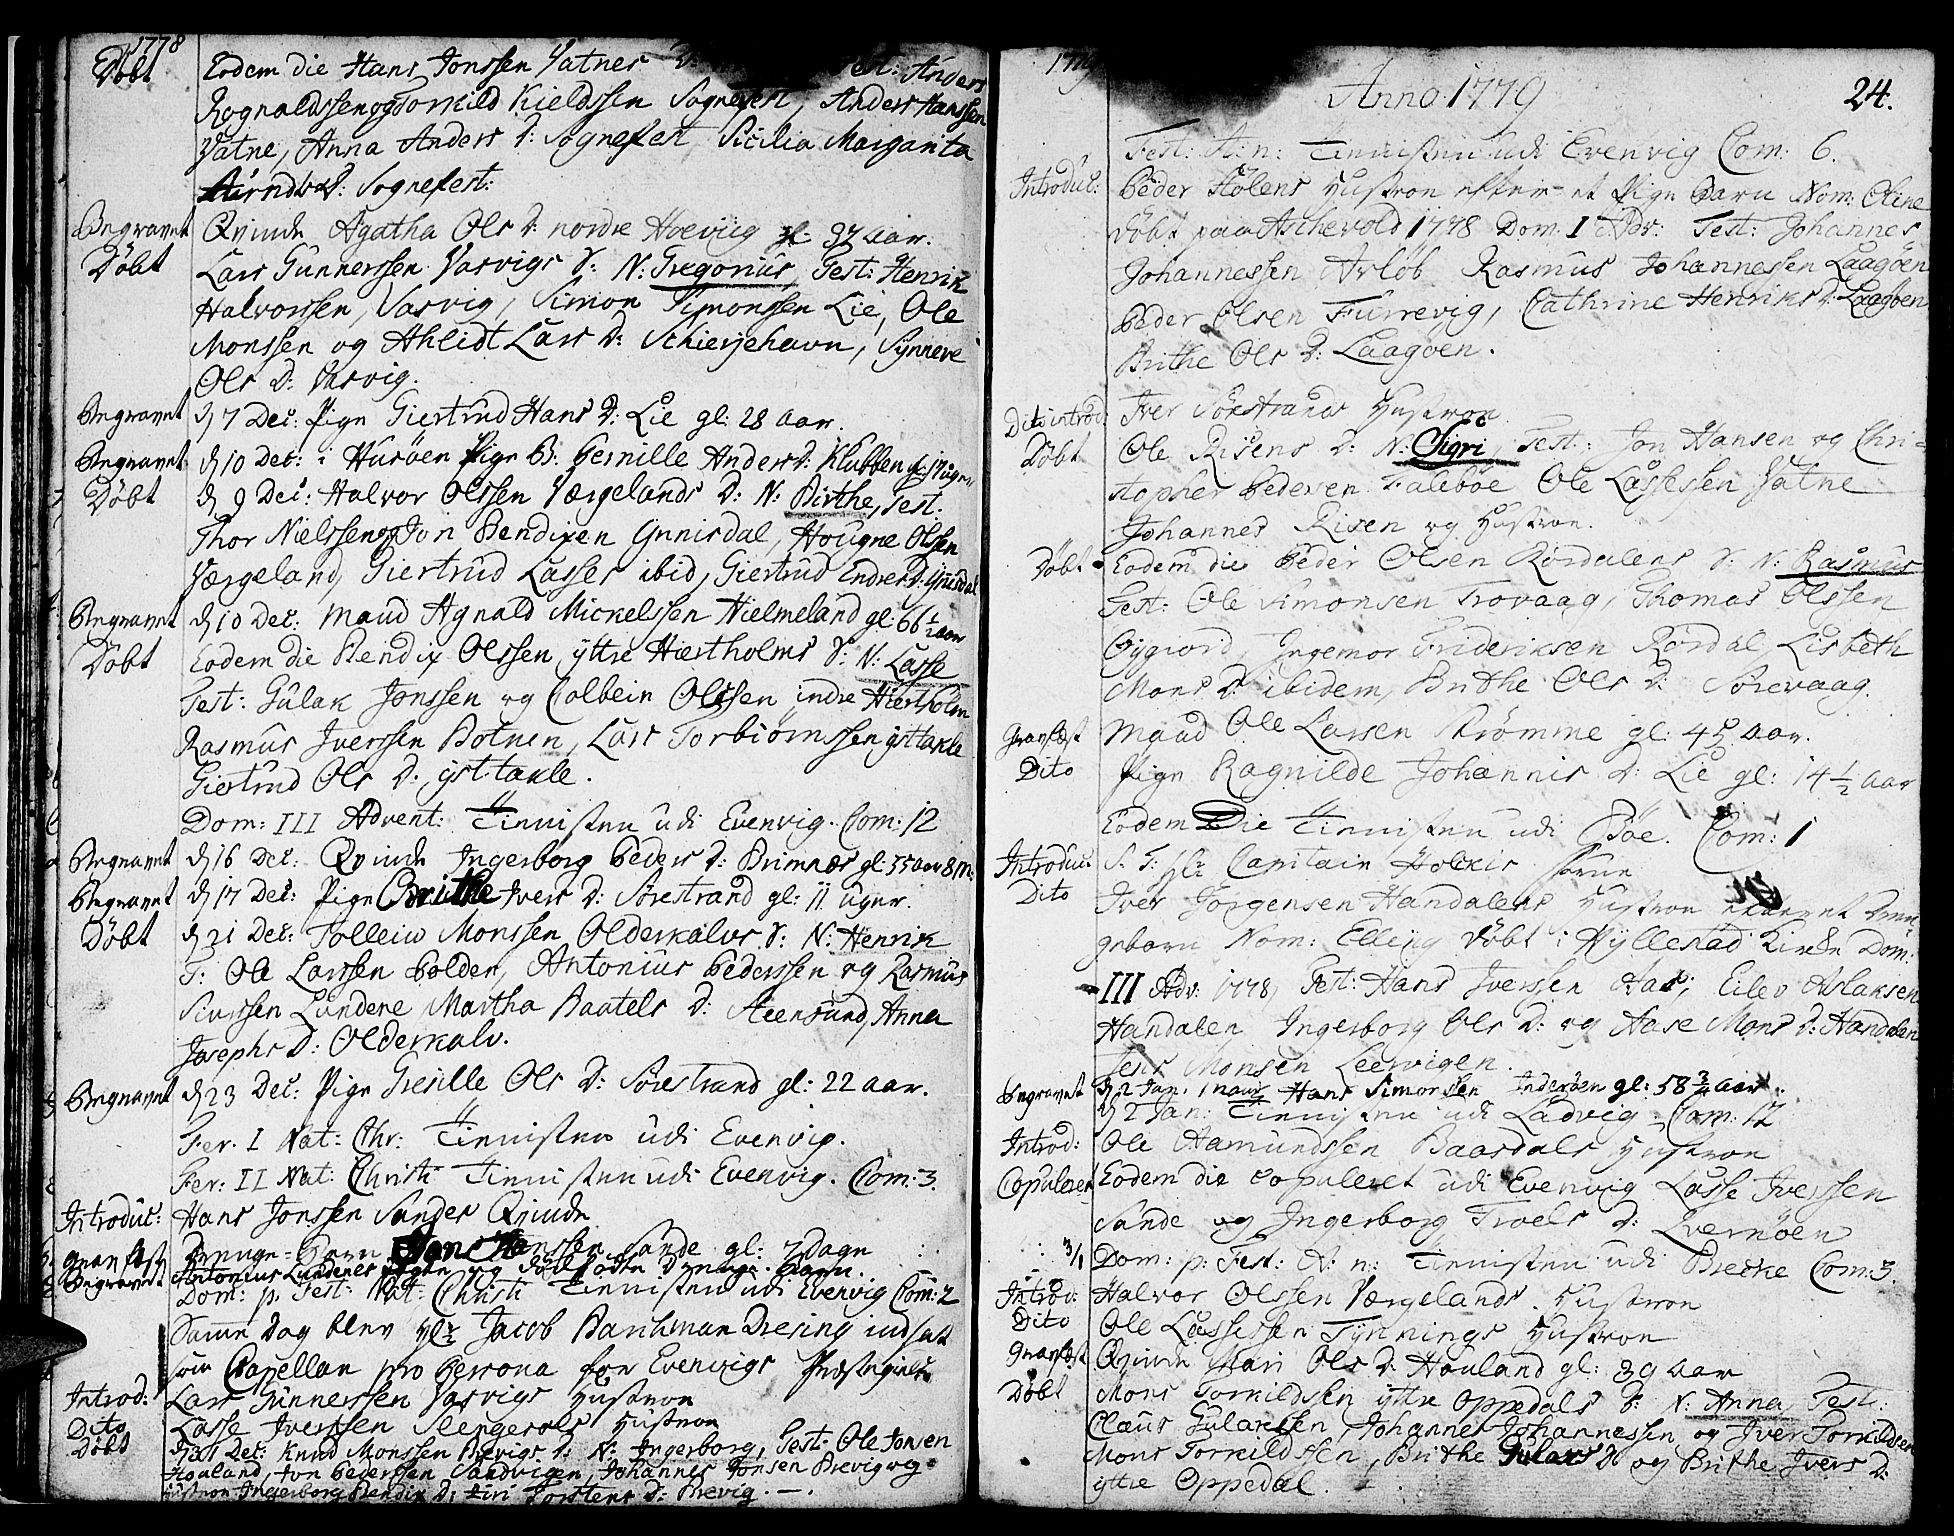 1778
Døbt Eodem die Hans Jonssen Vatnes Test: Anders
Rognaldssen og Torkild Kieldssen Sognefest, Anders Hanssen
Vatne, Anna Anders D: Sognefest Sicilia Margarita
D: Sognefest:
Begravet Qvinde Agatha Ols D: nordre Hoevig gl: 37 aar.
Døbt Lars Gunnerssen Vasvigs S: N: Gregorius, Test: Henrik
Halvorssen, Vasvig, Simon Simonssen Lie, Ole
Monssen og Ahlidt Lars D: Schierjehavn, Synneve
Ols D: Vasvig.
Begravet d 7 Dec: Pige Giertrud Hans D: Lie gl: 28 aar.
Begravet d 10 Dec: i Husøen Pige B: Pernille Anders D: Klubben gl: 17 uger
Døbt d 9 Dec: Halvor Olssen Vergelands D: N: Birthe, Test.
Thor Nielssen og Jon Bendixen Ynnisdal, Hougne Olssen
Vergeland, Giertrud Lasses ibid, Giertrud Endres D: Ynnisdal
Begravet d 10 Dec: Mand Agnald Mickelssen Hielmeland gl: 66 1/2 aar
Døbt Eodem die Bendix Olssen yttre Hiertholms S: N: Lasse
Test: Gulak Jonssen og Colbein Olssen indre Hiertholm
Rasmus Iverssen Botnen, Lars Torbiørnssen ysttakle
Giertrud Ols D: ysttakle.
Dom: III Advent: Tienisten udi Evenvig. Com: 12
Begravet d 16 Dec: Qvinde Ingerborg Peders D: Brimnæs gl: 35 aar 8 m:
Begravet d 17 Dec: Pige Brithe Ivers D: Sørestrand gl: 11 uger.
Døbt d 21 Dec: Tolleiv Monssen Olderkalvs S: N: Henrik
T: Ole Larssen Polden, Antonius Pederssen og Rasmus
Siurssen Lundene Martha Baatels D: Steensund, Anna
Josephs D: Olderkalv.
Begravet d 23 Dec: Pige Gresille Ols D: Sørestrand gl: 22 aar.
Fer. I Nat: Chr: Tienisten udi Evenvig.
Fer: II Nat: Christi Tienisten udi Evenvig. Com: 3.
Introduc: Hans Jonssen Sandes Qvinde
Gravfæst Drenge-Barn Hans Hanssen Sande gl: 7 dage
Begravet Antonius Lundenes Pigen og dødfødte Drenge-Barn.
Dom: p. Fest: Nat: Christi Tienisten udi Evenvig Com: 2
Samme Dag blev Hr Jacob Barhman Dresing indsat
som Capellan pro Persona for Evenvigs Præstegield.
Introd: Lars Gunnerssen Vasvigs Hustroe
Dito Lasse Iverssen Steegerals Hustroe
Døbt d 31 Dec: Knud Monssen Brevigs D: N: Ingerborg, Test: Ole Jonsen
Houland, Jon Pederssen Sandvigen, Johannes Jonsen Brevig og
Hustroe Ingerborg Bendix D: Siri Torstens D: Brevig.
1779 Anno 1779 24.
Fest: A: n: Tienisten udi Evenvig Com: 6.
Introduc: Peder Stølens Hustroe efter et Pige Barn Nom: Oline
døbt paa Aschevold 1778 Dom I Adv: Test: Johannes
Johannessen Arløb Rasmus Johannessen Laagøen
Peder Olsen Furrevig, Cathrine Henriks D: Laagøen
Brithe Ols D: Laagøen.
Dito introd: Iver Sørestrands Hustroe
Døbt Ole Risens D: N: Sigri Test: Jon Hansen og Chri-
stopher Pedersen Falebøe Ole Lassessen Vatne
Johannes Risen og Hustroe.
Døbt Eodem die Peder Olsen Rørdalens S: N: Rasmus
Test: Ole Simonsen Trovaag, Thomas Olssen
Øygrord, Ingemor Frideriksen Rørdal, Lisbeth
Mons D: ibidem, Brithe Ols D: Sørevaag.
Gravfæst Mand Ole Larsen Strømme gl: 45 aar.
Dito Pige Ragnilde Johannis D: Lie gl: 14 1/2 aar
Eodem Die Tienisten udi Bøe. Com: 1
Introduc: S: T: Hr Capitain Holcks Frue
Dito Iver Jørgensen Handalens Hustroe Dren-
gebarn Nom: Elling døbt i Hyllestad Kirke Dom:
III Adv: 1778, Test: Hans Iverssen Aas, Eilev Aslaksen
Handalen Ingerborg Ols D: og Aase Mons D: Handalen
Jens Monsen Leervigen.
Begravet d 2 Jan: Hans Simonsen Inderøen gl: 58 3/4 aar
d 2 Jan: Tienisten udi Ladvig Com: 12
Introd: Ole Hamundssen Baasdals Hustroe
Copuleret Eodem die copuleret udi Evenvig Lasse Iverssen
Sande og Ingerborg Troels D: Qvernøen
3/1 Dom: p: Fest: N: n: Tienisten udi Brecke Com: 3.
Introd: Halvor Olssen Vergelands Hustroe
Dito Ole Lassessen Tynnings Hustroe
Gravfæst Qvinde Mari Ols D: Houland gl: 39 aar
Døbt Mons Torkildsen yttre Oppedals D: N: Anna, Test:
Claus Gulakssen, Johannes Johannessen og Iver Torkildsen
Mons Torkildssen, Brithe Gulaks D og Brithe Ivers D:
yttre Oppedal.